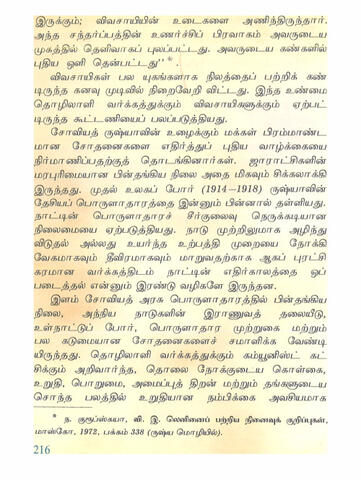 இருக்கும்; விவசாயியின் உடைகளை அணிந்திருந்தார்.
அந்த சந்தர்ப்பத்தின் உணர்ச்சிப் பிரவாகம் அவருடைய
முகத்தில் தெளிவாகப் புலப்பட்டது. அவருடைய கண்களில்
புதிய ஒளி தென்பட்டது" *.
விவசாயிகள் பல யுகங்களாக நிலத்தைப் பற்றிக் கண்
டிருந்த கனவு முடிவில் நிறைவேறி விட்டது. இந்த உண்மை
தொழிலாளி வர்க்கத்துக்கும் விவசாயிகளுக்கும் ஏற்பட்
டிருந்த கூட்டணியைப் பலப்படுத்தியது.
சோவியத் ருஷ்யாவின் உழைக்கும் மக்கள் பிரம்மாண்ட
மான சோதனைகளை எதிர்த்துப் புதிய வாழ்க்கையை
நிர்மாணிப்பதற்குத் தொடங்கினார்கள். ஜாராட்சிகளின்
மரபுரிமையான பின்தங்கிய நிலை அதை மிகவும் சிக்கலாக்கி
இருந்தது. முதல் உலகப் போர் (1914—1918) ருஷ்யாவின்
தேசியப் பொருளாதாரத்தை இன்னும் பின்னால் தள்ளியது.
நாட்டின் பொருளாதாரச் சீர்குலைவு நெருக்கடியான
நிலைமையை ஏற்படுத்தியது. நாடு முற்றிலுமாக அழிந்து
விடுதல் அல்லது உயர்ந்த உற்பத்தி முறையை நோக்கி
வேகமாகவும் தீவிரமாகவும் மாறுவதற்காக ஆகப் புரட்சி
கரமான வர்க்கத்திடம் நாட்டின் எதிர்காலத்தை ஒப்
படைத்தல் என்னும் இரண்டு வழிகளே இருந்தன.
இளம் சோவியத் அரசு பொருளாதாரத்தில் பின்தங்கிய
நிலை, அந்நிய நாடுகளின் இராணுவத் தலையீடு,
உள்நாட்டுப் போர், பொருளாதார முற்றுகை மற்றும்
பல கடுமையான சோதனைகளைச் சமாளிக்க வேண்டி
யிருந்தது. தொழிலாளி வர்க்கத்துக்கும் கம்யூனிஸ்ட் கட்
சிக்கும் அறிவார்ந்த, தொலை நோக்குடைய கொள்கை,
உறுதி, பொறுமை, அமைப்புத் திறன் மற்றும் தங்களுடைய
சொந்த பலத்தில் உறுதியான நம்பிக்கை அவசியமாக
* ந. குரூப்ஸ்கயா, வி. இ. லெனினைப் பற்றிய நினைவுக் குறிப்புகள்,
மாஸ்கோ, 1972, பக்கம் 338 (ருஷ்ய மொழியில்).
216